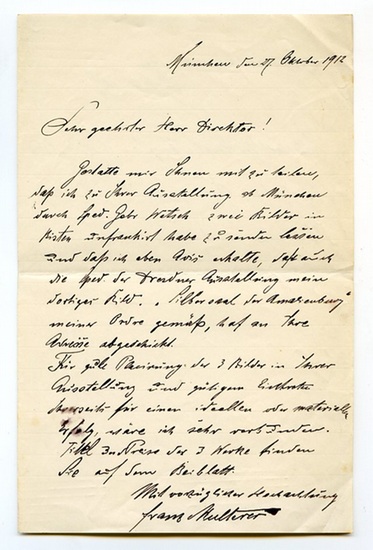 München den 27. Oktober 1912
Sehr geehrter Herr Direktor!
Gestatte mir Ihnen mitzuteilen,
daß ich zu Ihrer Ausstellung München
durch Sped. Gebr Wetsch zwei Bilder in
Kisten unfrankirt habe zusenden lassen
und daß ich eben Avis erhalte, daß auch
die Sped. der Dresdner Ausstellung mein
dortiges Bild „ der
meiner Ordre gemäß, hat an Ihre
Adresse abgeschickt.
Für gute Placirung der 3 Bilder in Ihrer
Ausstellung und gütigem Eintreten
Ihrerseits für einen ideellen oder materiellen
Erfolg, wäre ich sehr verbunden.
Titel und Preise der 3 Werke finden
Sie auf dem Beiblatt.
Mit vorzüglicher Hochachtung
Franz Multerer